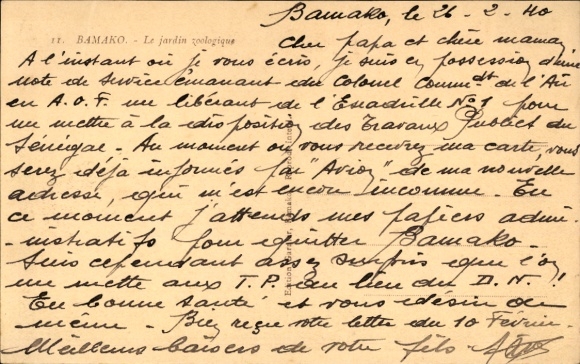 Bamako, le 26-2-40
11. BAMAKO. - Le jardin zoologique
Cher papa et chère maman
A l'instant où je vous écris, je suis en possession d'une
note de service émanant du Colonel Commdt de l'Air
en A.O.F. me libérant de l'Escadrille N°1 pour
me mettre à la disposition des Travaux Publics du
Sénégal - Au moment où vous recevrez ma carte, vous
serez déjà informés par "Avion" de ma nouvelle
adresse, qui m'est encore inconnue. En
ce moment j'attends mes papiers admi-
-nistratifs pour quitter Bamako -
Suis cependant assez surpris que l'on
me mette aux T.P. au lieu du D.N. !!
En bonne santé et vous désire de
même - Bien reçu votre lettre du 10 Février -
Meilleurs baisers de votre fils